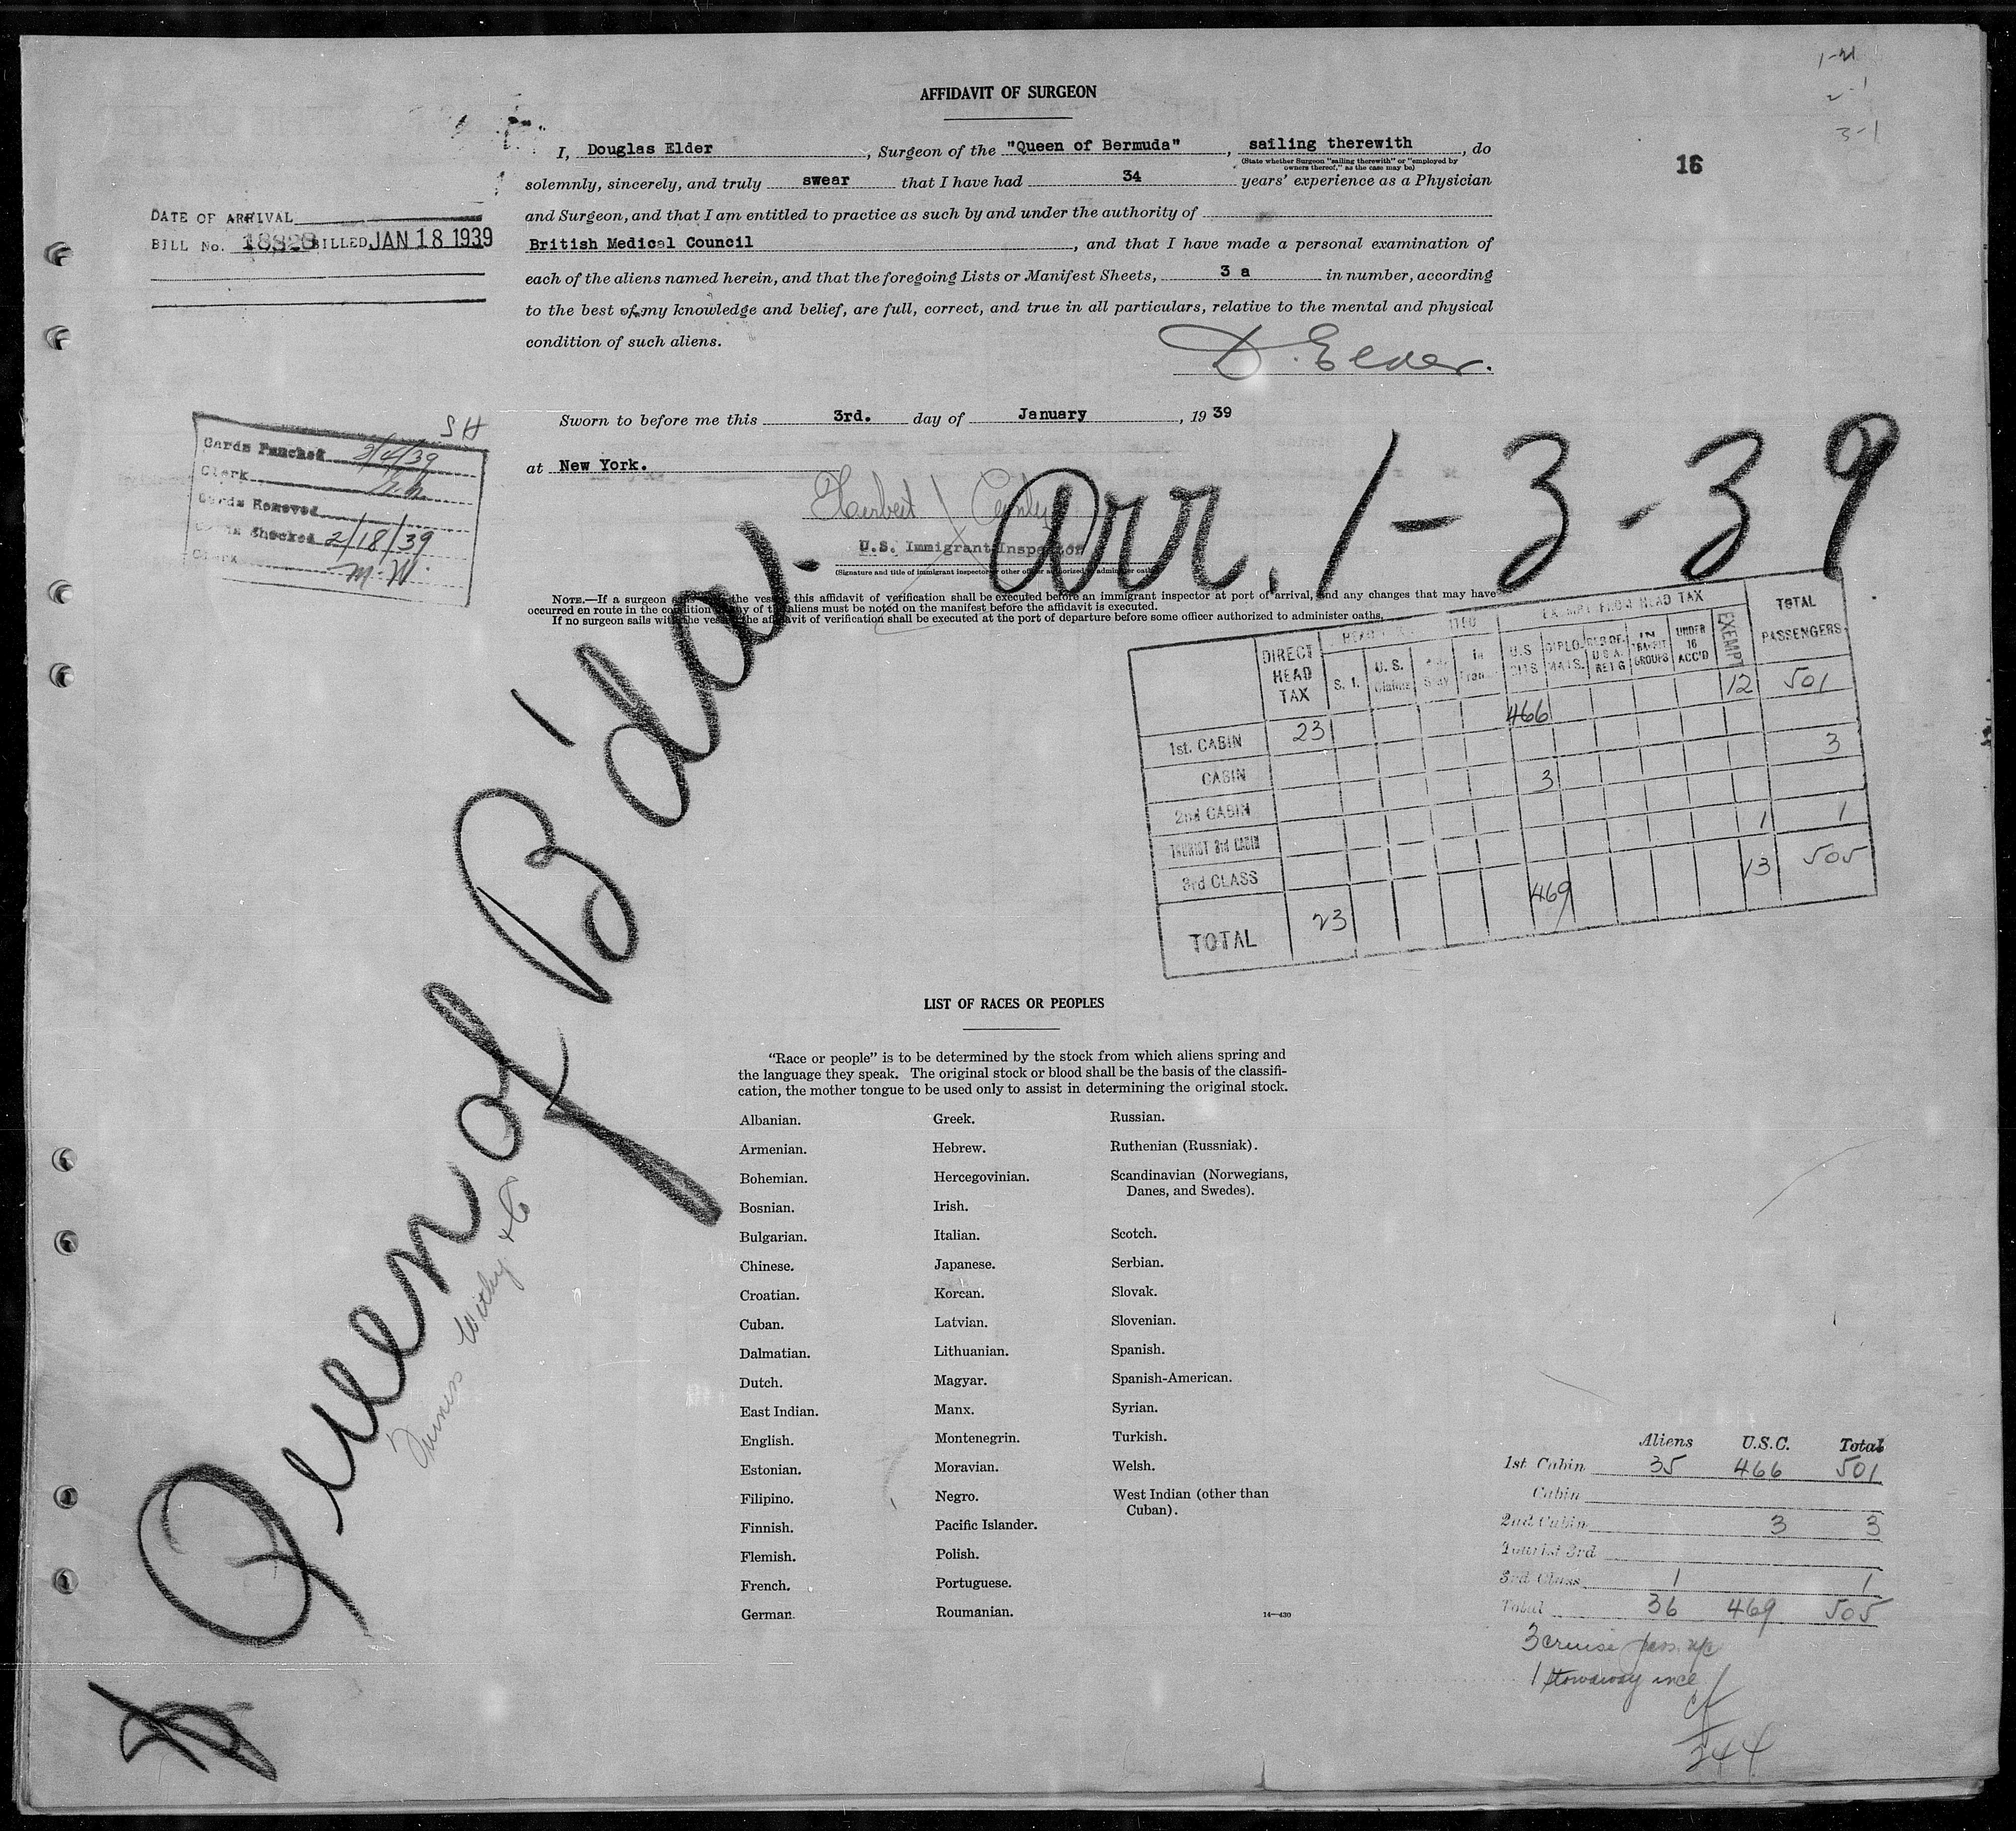 1-21
2-1
3-1
16
AFFIDAVIT OF SURGEON
I, Douglas Elder, Surgeon of the "Queen of Bermuda", sailing therewith, do
(State whether Surgeon "sailing therewith" or "employed by
owners thereof," as the case may be)
solemnly, sincerely, and truly swear that I have had 34 years' experience as a Physician
and Surgeon, and that I am entitled to practice as such by and under the authority of
British Medical Council, and that I have made a personal examination of
each of the aliens named herein, and that the foregoing Lists or Manifest Sheets, 3 a in number, according
to the best of my knowledge and belief, are full, correct, and true in all particulars, relative to the mental and physical
condition of such aliens.
D. Elder.
DATE OF ARRIVAL
BILL No. BILLED JAN 18 1939
Sworn to before me this 3rd. day of January, 1939
at New York.
Herbert
U.S. Immigrant Inspector
(Signature and title of immigrant inspector or other officer authorized to administer oaths)
SH
Cards Punched 2/4/39
Clerk
Cards Removed
Cards Checked 2/18/39
Clerk M.W.
NOTE.—If a surgeon sails with the vessel this affidavit of verification shall be executed before an immigrant inspector at port of arrival, and any changes that may have
occurred en route in the condition of any of the aliens must be noted on the manifest before the affidavit is executed.
If no surgeon sails with the vessel the affidavit of verification shall be executed at the port of departure before some officer authorized to administer oaths.
Queen of B'da - arr. 1-3-39
Furness Withy & Co
EXEMPT FROM HEAD TAX
DIRECT HEAD TAX S. I. U.S. CITS DIPLOMATS. IN TRANSIT GROUPS UNDER 16 ACC'D EXEMPT TOTAL PASSENGERS
1st. CABIN 23 466 12 501
CABIN
2nd CABIN 3 3
TOURIST 3rd CABIN
3rd CLASS 1 1
TOTAL 23 469 13 505
LIST OF RACES OR PEOPLES
"Race or people" is to be determined by the stock from which aliens spring and
the language they speak. The original stock or blood shall be the basis of the classifi-
cation, the mother tongue to be used only to assist in determining the original stock.
Albanian.
Armenian.
Bohemian.
Bosnian.
Bulgarian.
Chinese.
Croatian.
Cuban.
Dalmatian.
Dutch.
East Indian.
English.
Estonian.
Filipino.
Finnish.
Flemish.
French.
German.
Greek.
Hebrew.
Hercegovinian.
Irish.
Italian.
Japanese.
Korean.
Latvian.
Lithuanian.
Magyar.
Manx.
Montenegrin.
Moravian.
Negro.
Pacific Islander.
Polish.
Portuguese.
Roumanian.
Russian.
Ruthenian (Russniak).
Scandinavian (Norwegians,
Danes, and Swedes).
Scotch.
Serbian.
Slovak.
Slovenian.
Spanish.
Spanish-American.
Syrian.
Turkish.
Welsh.
West Indian (other than
Cuban).
14—430
Aliens U.S.C. Total
1st Cabin 35 466 501
Cabin
2nd Cabin 3 3
Tourist 3rd
3rd Class 1 1
Total 36 469 505
3 cruise pass.
1 stowaway incl
344